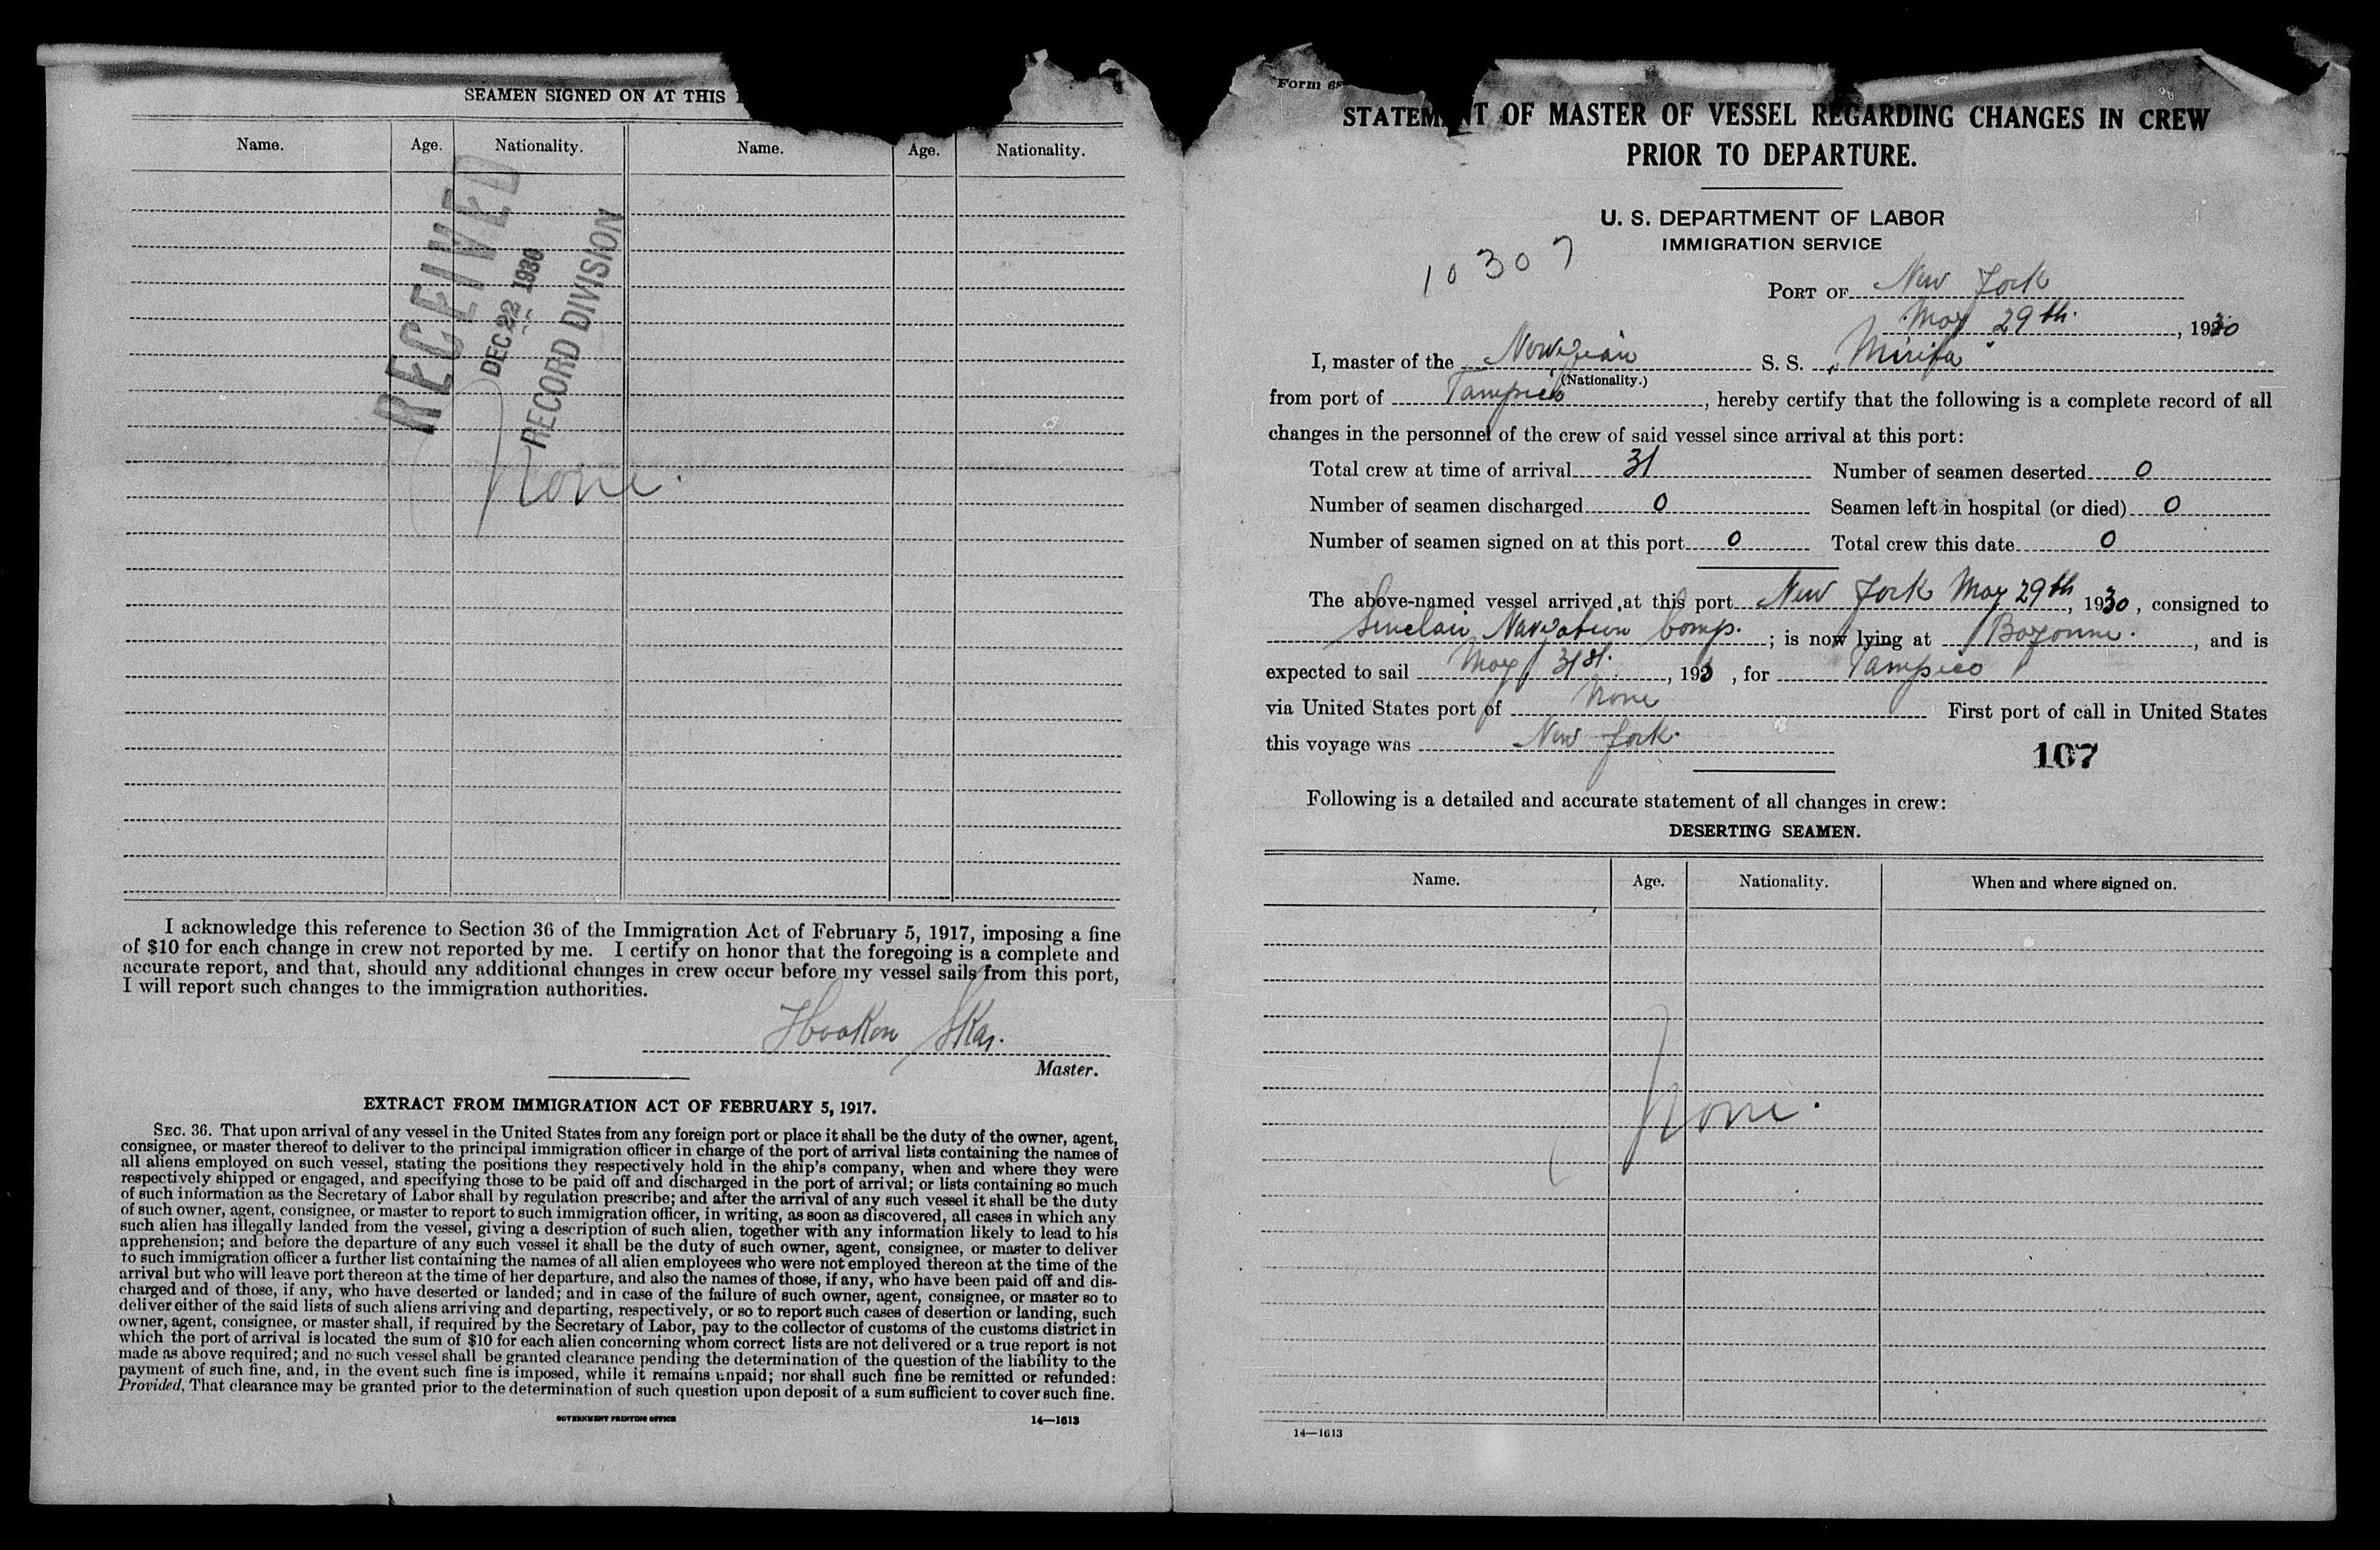 SEAMEN SIGNED ON AT THIS
Name. Age. Nationality. Name. Age. Nationality.
RECEIVED
DEC 22 1930
RECORD DIVISION
None.
I acknowledge this reference to Section 36 of the Immigration Act of February 5, 1917, imposing a fine
of $10 for each change in crew not reported by me. I certify on honor that the foregoing is a complete and
accurate report, and that, should any additional changes in crew occur before my vessel sails from this port,
I will report such changes to the immigration authorities.
Haakon Skar.
Master.
EXTRACT FROM IMMIGRATION ACT OF FEBRUARY 5, 1917.
SEC. 36. That upon arrival of any vessel in the United States from any foreign port or place it shall be the duty of the owner, agent,
consignee, or master thereof to deliver to the principal immigration officer in charge of the port of arrival lists containing the names of
all aliens employed on such vessel, stating the positions they respectively hold in the ship's company, when and where they were
respectively shipped or engaged, and specifying those to be paid off and discharged in the port of arrival; or lists containing so much
of such information as the Secretary of Labor shall by regulation prescribe; and after the arrival of any such vessel it shall be the duty
of such owner, agent, consignee, or master to report to such immigration officer, in writing, as soon as discovered, all cases in which any
such alien has illegally landed from the vessel, giving a description of such alien, together with any information likely to lead to his
apprehension; and before the departure of any such vessel it shall be the duty of such owner, agent, consignee, or master to deliver
to such immigration officer a further list containing the names of all alien employees who were not employed thereon at the time of the
arrival but who will leave port thereon at the time of her departure, and also the names of those, if any, who have been paid off and dis-
charged and of those, if any, who have deserted or landed; and in case of the failure of such owner, agent, consignee, or master so to
deliver either of the said lists of such aliens arriving and departing, respectively, or so to report such cases of desertion or landing, such
owner, agent, consignee, or master shall, if required by the Secretary of Labor, pay to the collector of customs of the customs district in
which the port of arrival is located the sum of $10 for each alien concerning whom correct lists are not delivered or a true report is not
made as above required; and no such vessel shall be granted clearance pending the determination of the question of the liability to the
payment of such fine, and, in the event such fine is imposed, while it remains unpaid; nor shall such fine be remitted or refunded:
Provided, That clearance may be granted prior to the determination of such question upon deposit of a sum sufficient to cover such fine.
GOVERNMENT PRINTING OFFICE 14—1613
Form
STATEMENT OF MASTER OF VESSEL REGARDING CHANGES IN CREW
PRIOR TO DEPARTURE.
U. S. DEPARTMENT OF LABOR
IMMIGRATION SERVICE
10307
PORT OF New York
May 29th. , 1930
I, master of the Norwegian S. S. „Mirita"
(Nationality.)
from port of Tampico , hereby certify that the following is a complete record of all
changes in the personnel of the crew of said vessel since arrival at this port:
Total crew at time of arrival 31 Number of seamen deserted 0
Number of seamen discharged 0 Seamen left in hospital (or died) 0
Number of seamen signed on at this port 0 Total crew this date 0
The above-named vessel arrived at this port New York May 29th , 1930 , consigned to
Sinclair Navigation Comp. ; is now lying at Bayonne. , and is
expected to sail May 31st. , 193 , for Tampico
via United States port of None First port of call in United States
this voyage was New York.
167
Following is a detailed and accurate statement of all changes in crew:
DESERTING SEAMEN.
Name. Age. Nationality. When and where signed on.
None.
14—1613